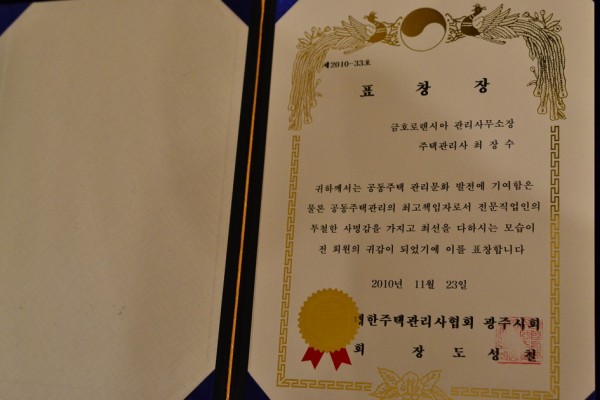 제2010-33호
표 창 장
금호로랜시아 관리사무소장
주택관리사 최 장 수
귀하께서는 공동주택 관리문화 발전에 기여함은
물론 공동주택관리의 최고책임자로서 전문직업인의
투철한 사명감을 가지고 최선을 다하시는 모습이
전 회원의 귀감이 되었기에 이를 표창합니다
2010년 11월 23일
대한주택관리사협회 광주시회
회 장 도 성 철